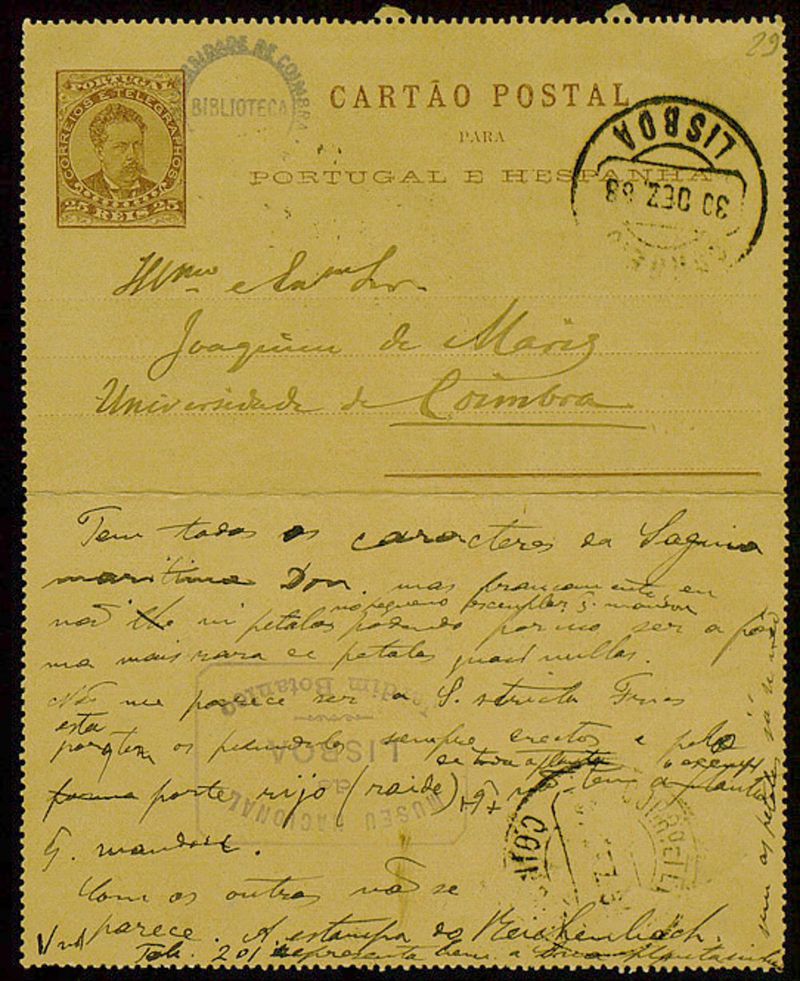 29
UNIVERSIDADE DE COIMBRA
BIBLIOTECA
PORTUGAL
CORREIOS E TELEGRAPHOS
25 REIS 25
CARTÃO POSTAL
PARA
PORTUGAL E HESPANHA
LISBOA
30 DEZ 88
Illmo e Snr
Joaquim de Mariz
Universidade de Coimbra
Tem todos os caracteres da Sagina
maritima Don. mas francamente, eu
no pequeno exemplar q. mandou
não vi petalas podendo porisso ser a for
ma mais rara de petalas quasi nullas.
Não me parece ser a S. stricta Fries
esta
porq tem os pedunculos sempre erectos e
porte rijo (raide) não tem a planta
q. mandou.
Com as outras não se
parece. A estampa do Reichenbach.
Tab. 201 representa bem a plantasinha
MUSEU NACIONAL
de
LISBOA
Jardim Botanico